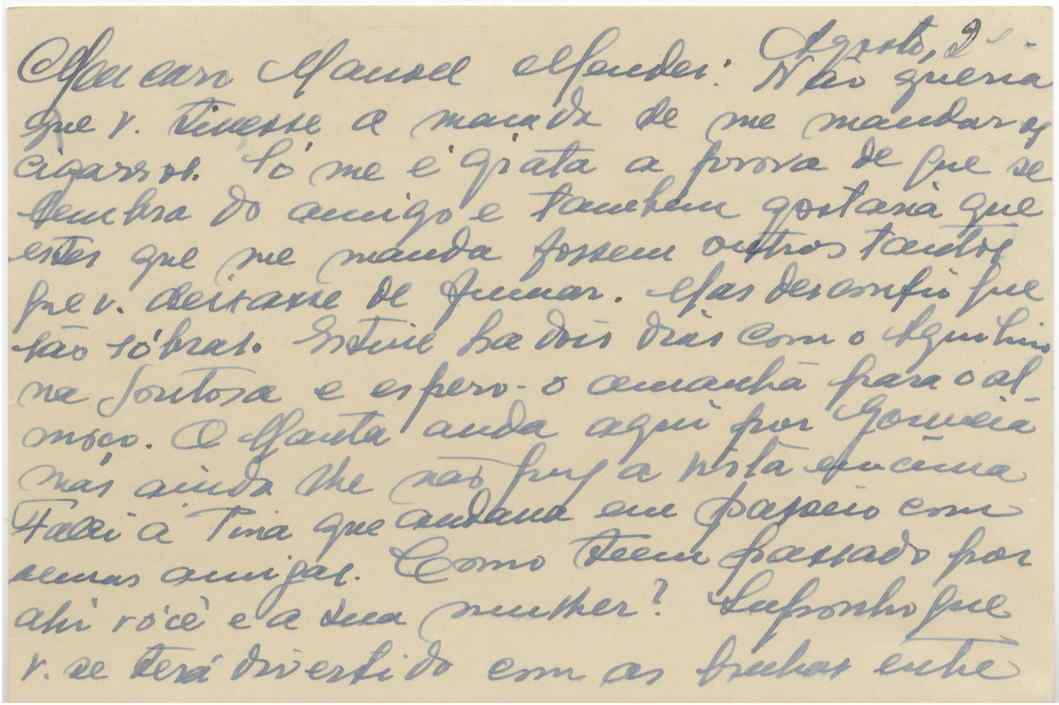 Agosto, 2
Meu caro Manoel Mendes: Não queria
que v. tivesse a maçada de me mandar os
cigarros. Só me é grata a prova de que se
lembra do amigo e tambem gostaria que
estes que me manda fossem outros tantos
que v. deixasse de fumar. Mas desconfio que
são sóbras. Estive ha dois dias com o Aquilino
na Soutosa e espero-o amanhã para o al
moço. O Manta anda aqui por Gouveia
mas ainda lhe não puz a vista em cima
Falei á Tina que andava em passeio com
umas amigas. Como teem passado por
ahi você e a sua mulher? Suponho que
v. se terá divertido com as entre